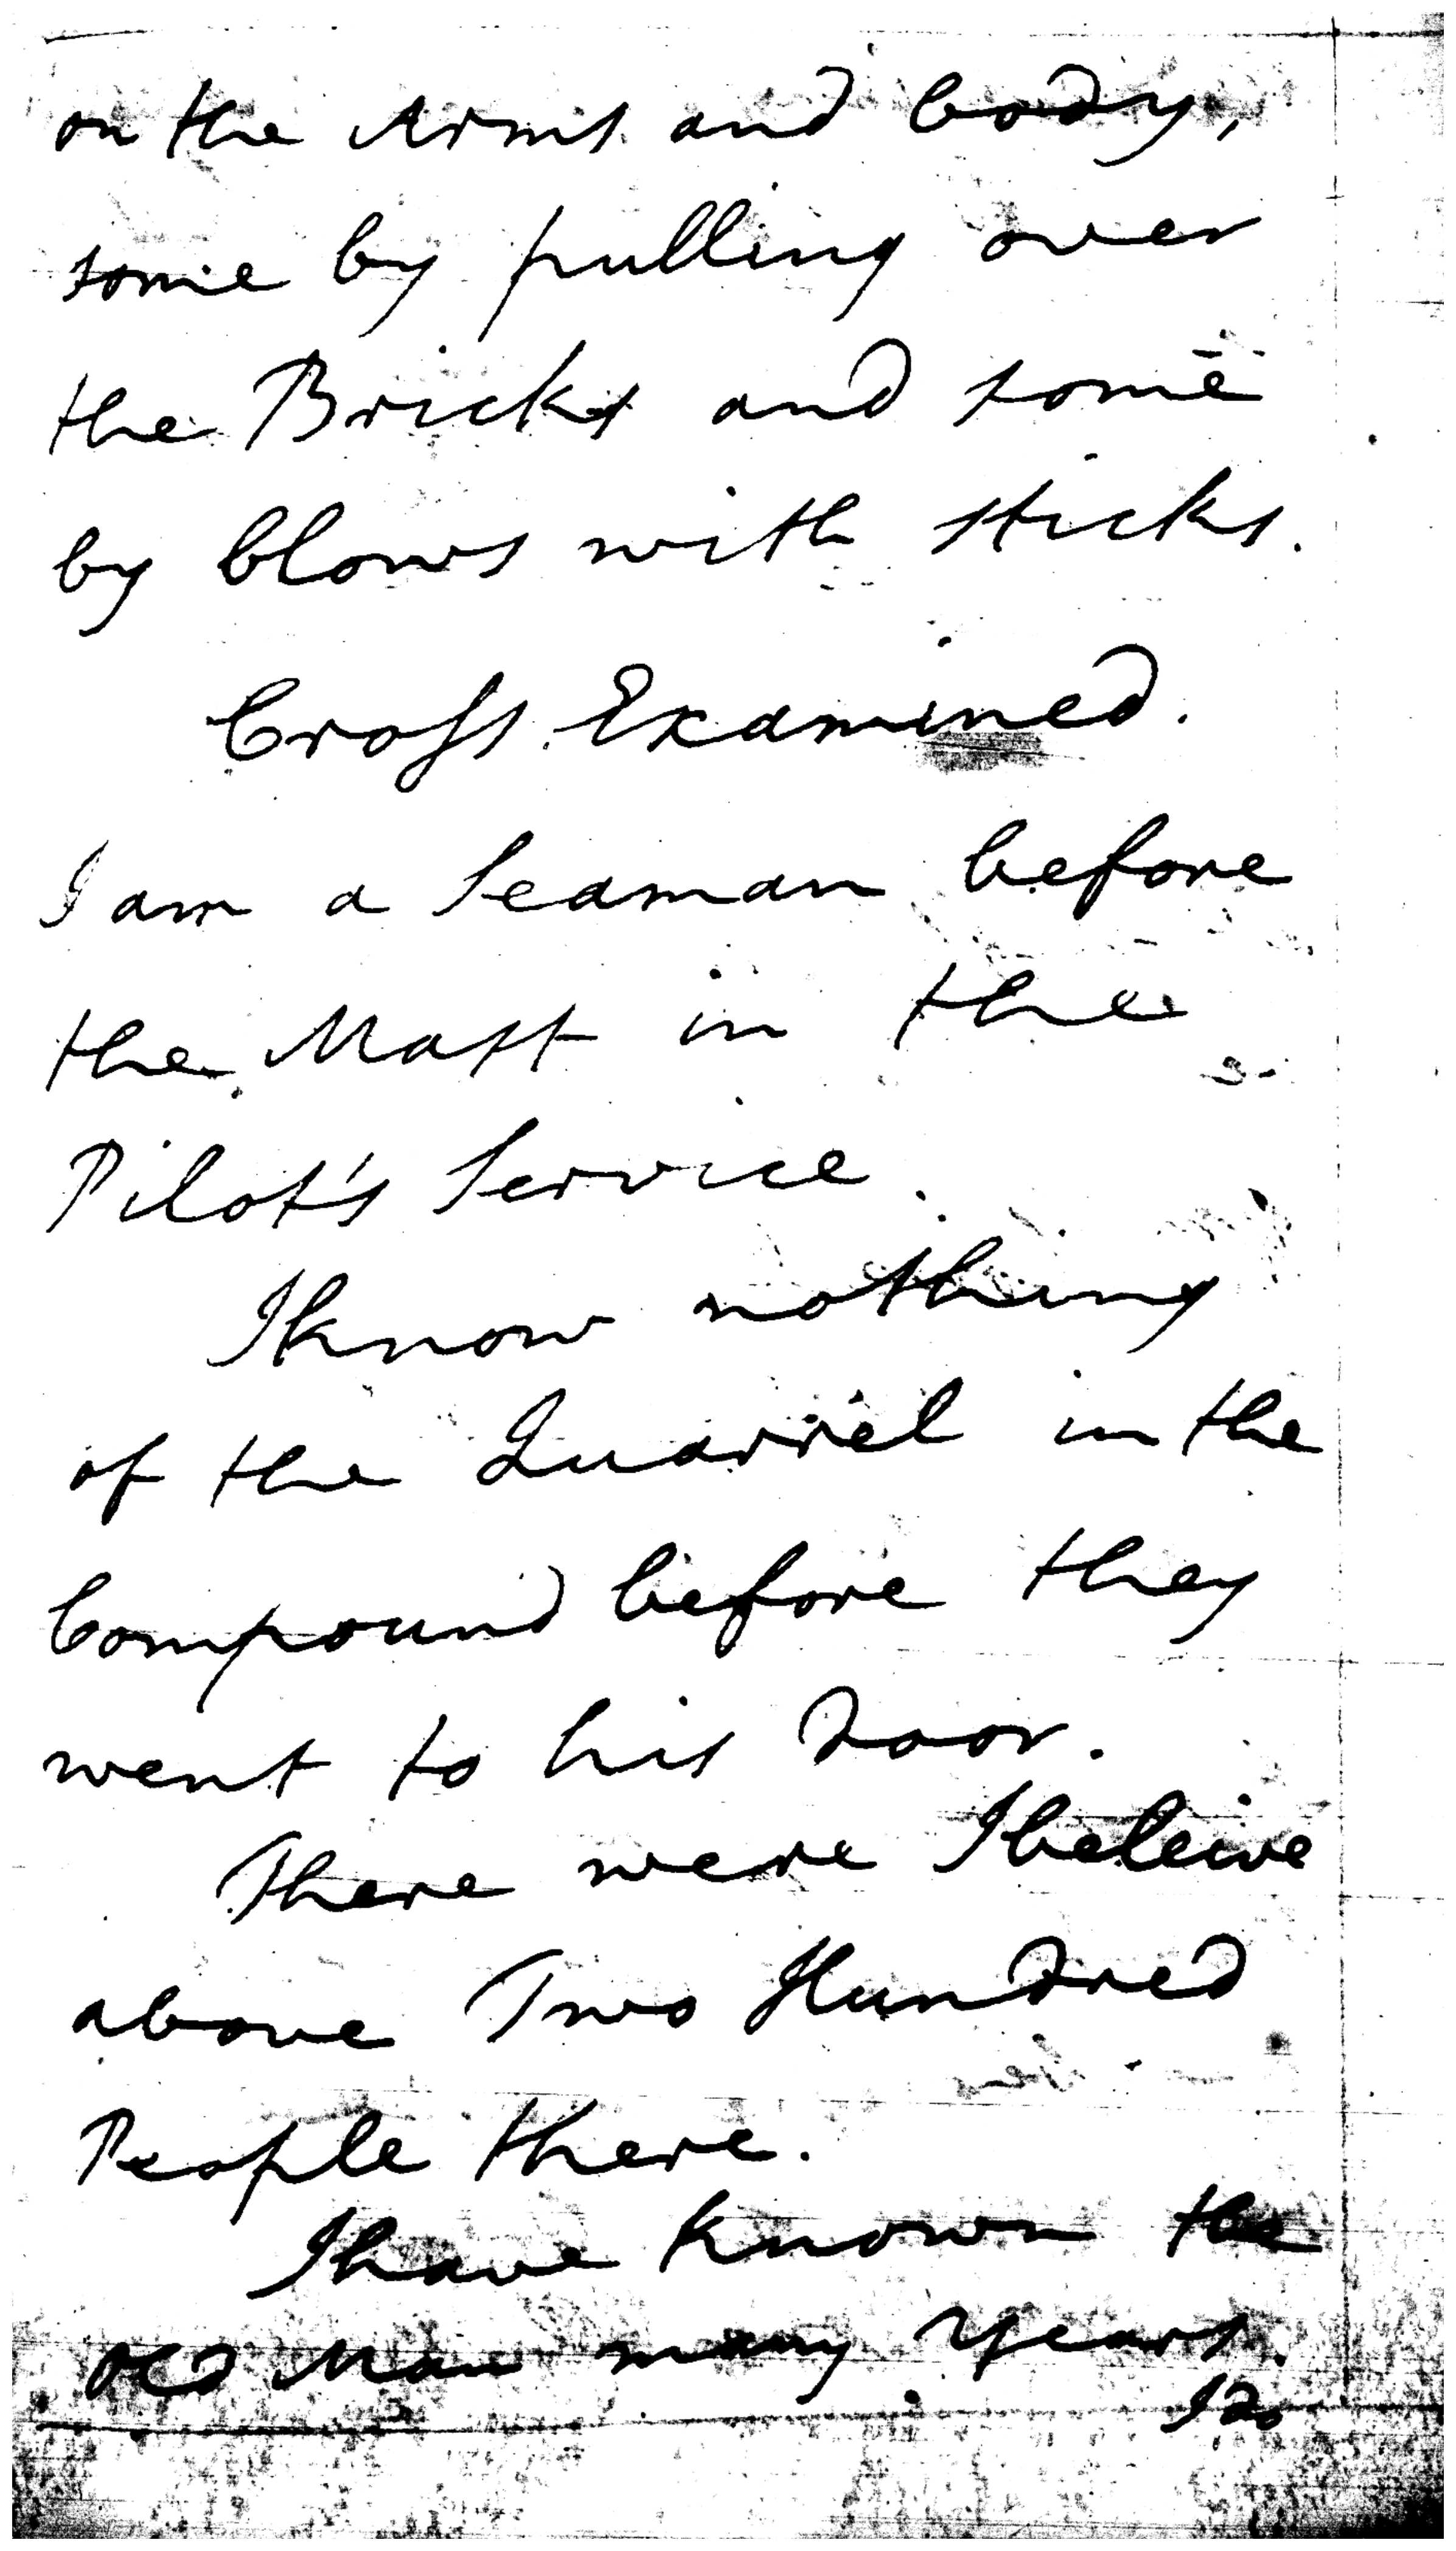 on the Arms and body,
some by pulling over
the Bricks and some
by blows with sticks.
Cross Examined.
I am a Seaman before
the Mast in the
Pilot's Service.
I know nothing
of the Quarrel in the
Compound before they
went to his Door.
There were I beleive
above Two Hundred
People there.
I have known the
old Man many Years.
I do